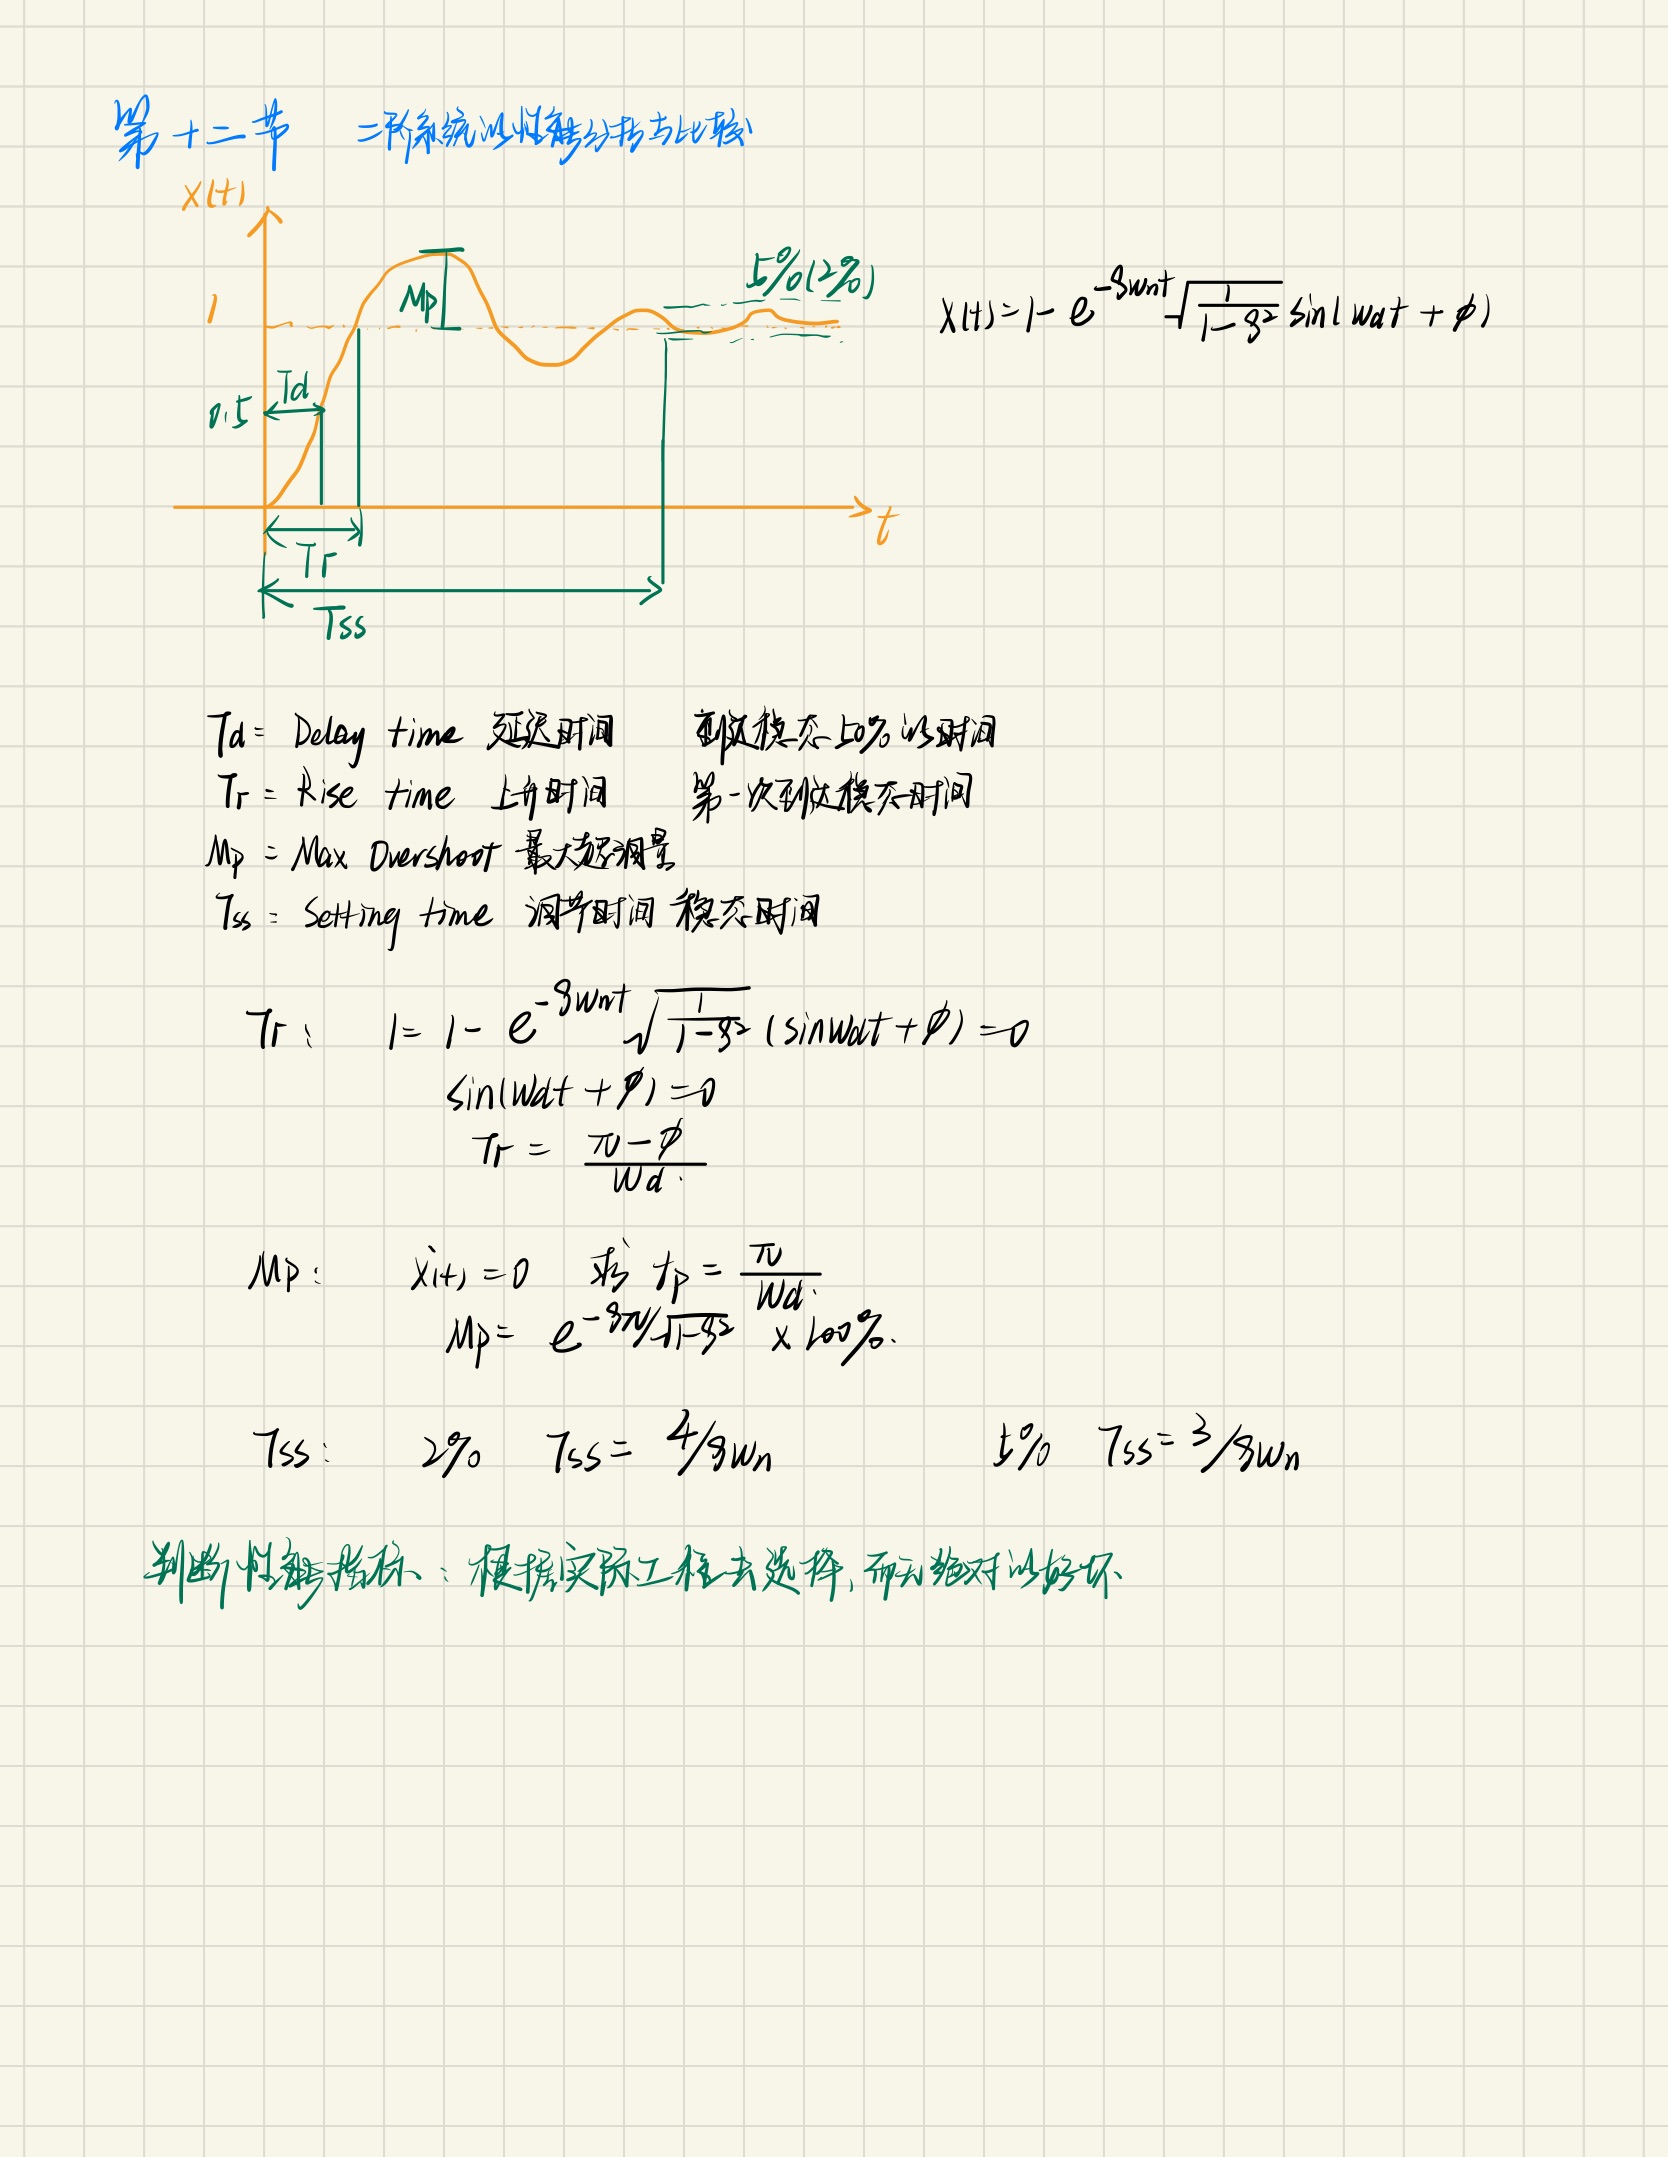 第十二节 二阶系统的性能分析与比较
x(t)
1
Mp
5%(2%)
x(t)=1-e^{-ζwnt}√(1/(1-ζ²)) sin(wdt+φ)
Td
0.5
t
Tr
Tss
Td = Delay time 延迟时间 到达稳态50%的时间
Tr = Rise time 上升时间 第一次到达稳态时间
Mp = Max Overshoot 最大超调量
Tss = Setting time 调节时间 稳态时间
Tr: 1=1-e^{-ζwnt}√(1/(1-ζ²)) (sinwdt+φ)=0
sin(wdt+φ)=0
Tr = (π-φ)/wd.
Mp: ẋ(t)=0 求 tp = π/wd.
Mp = e^{-ζπ/√(1-ζ²)} ×100%.
Tss: 2% Tss = 4/ζwn 5% Tss = 3/ζwn
判断性能指标:根据实际工程去选择,而无绝对的好坏